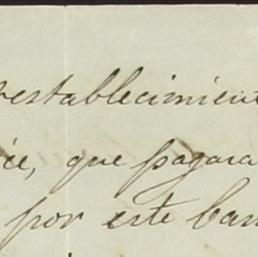 establecimient
que pagara
por este ban